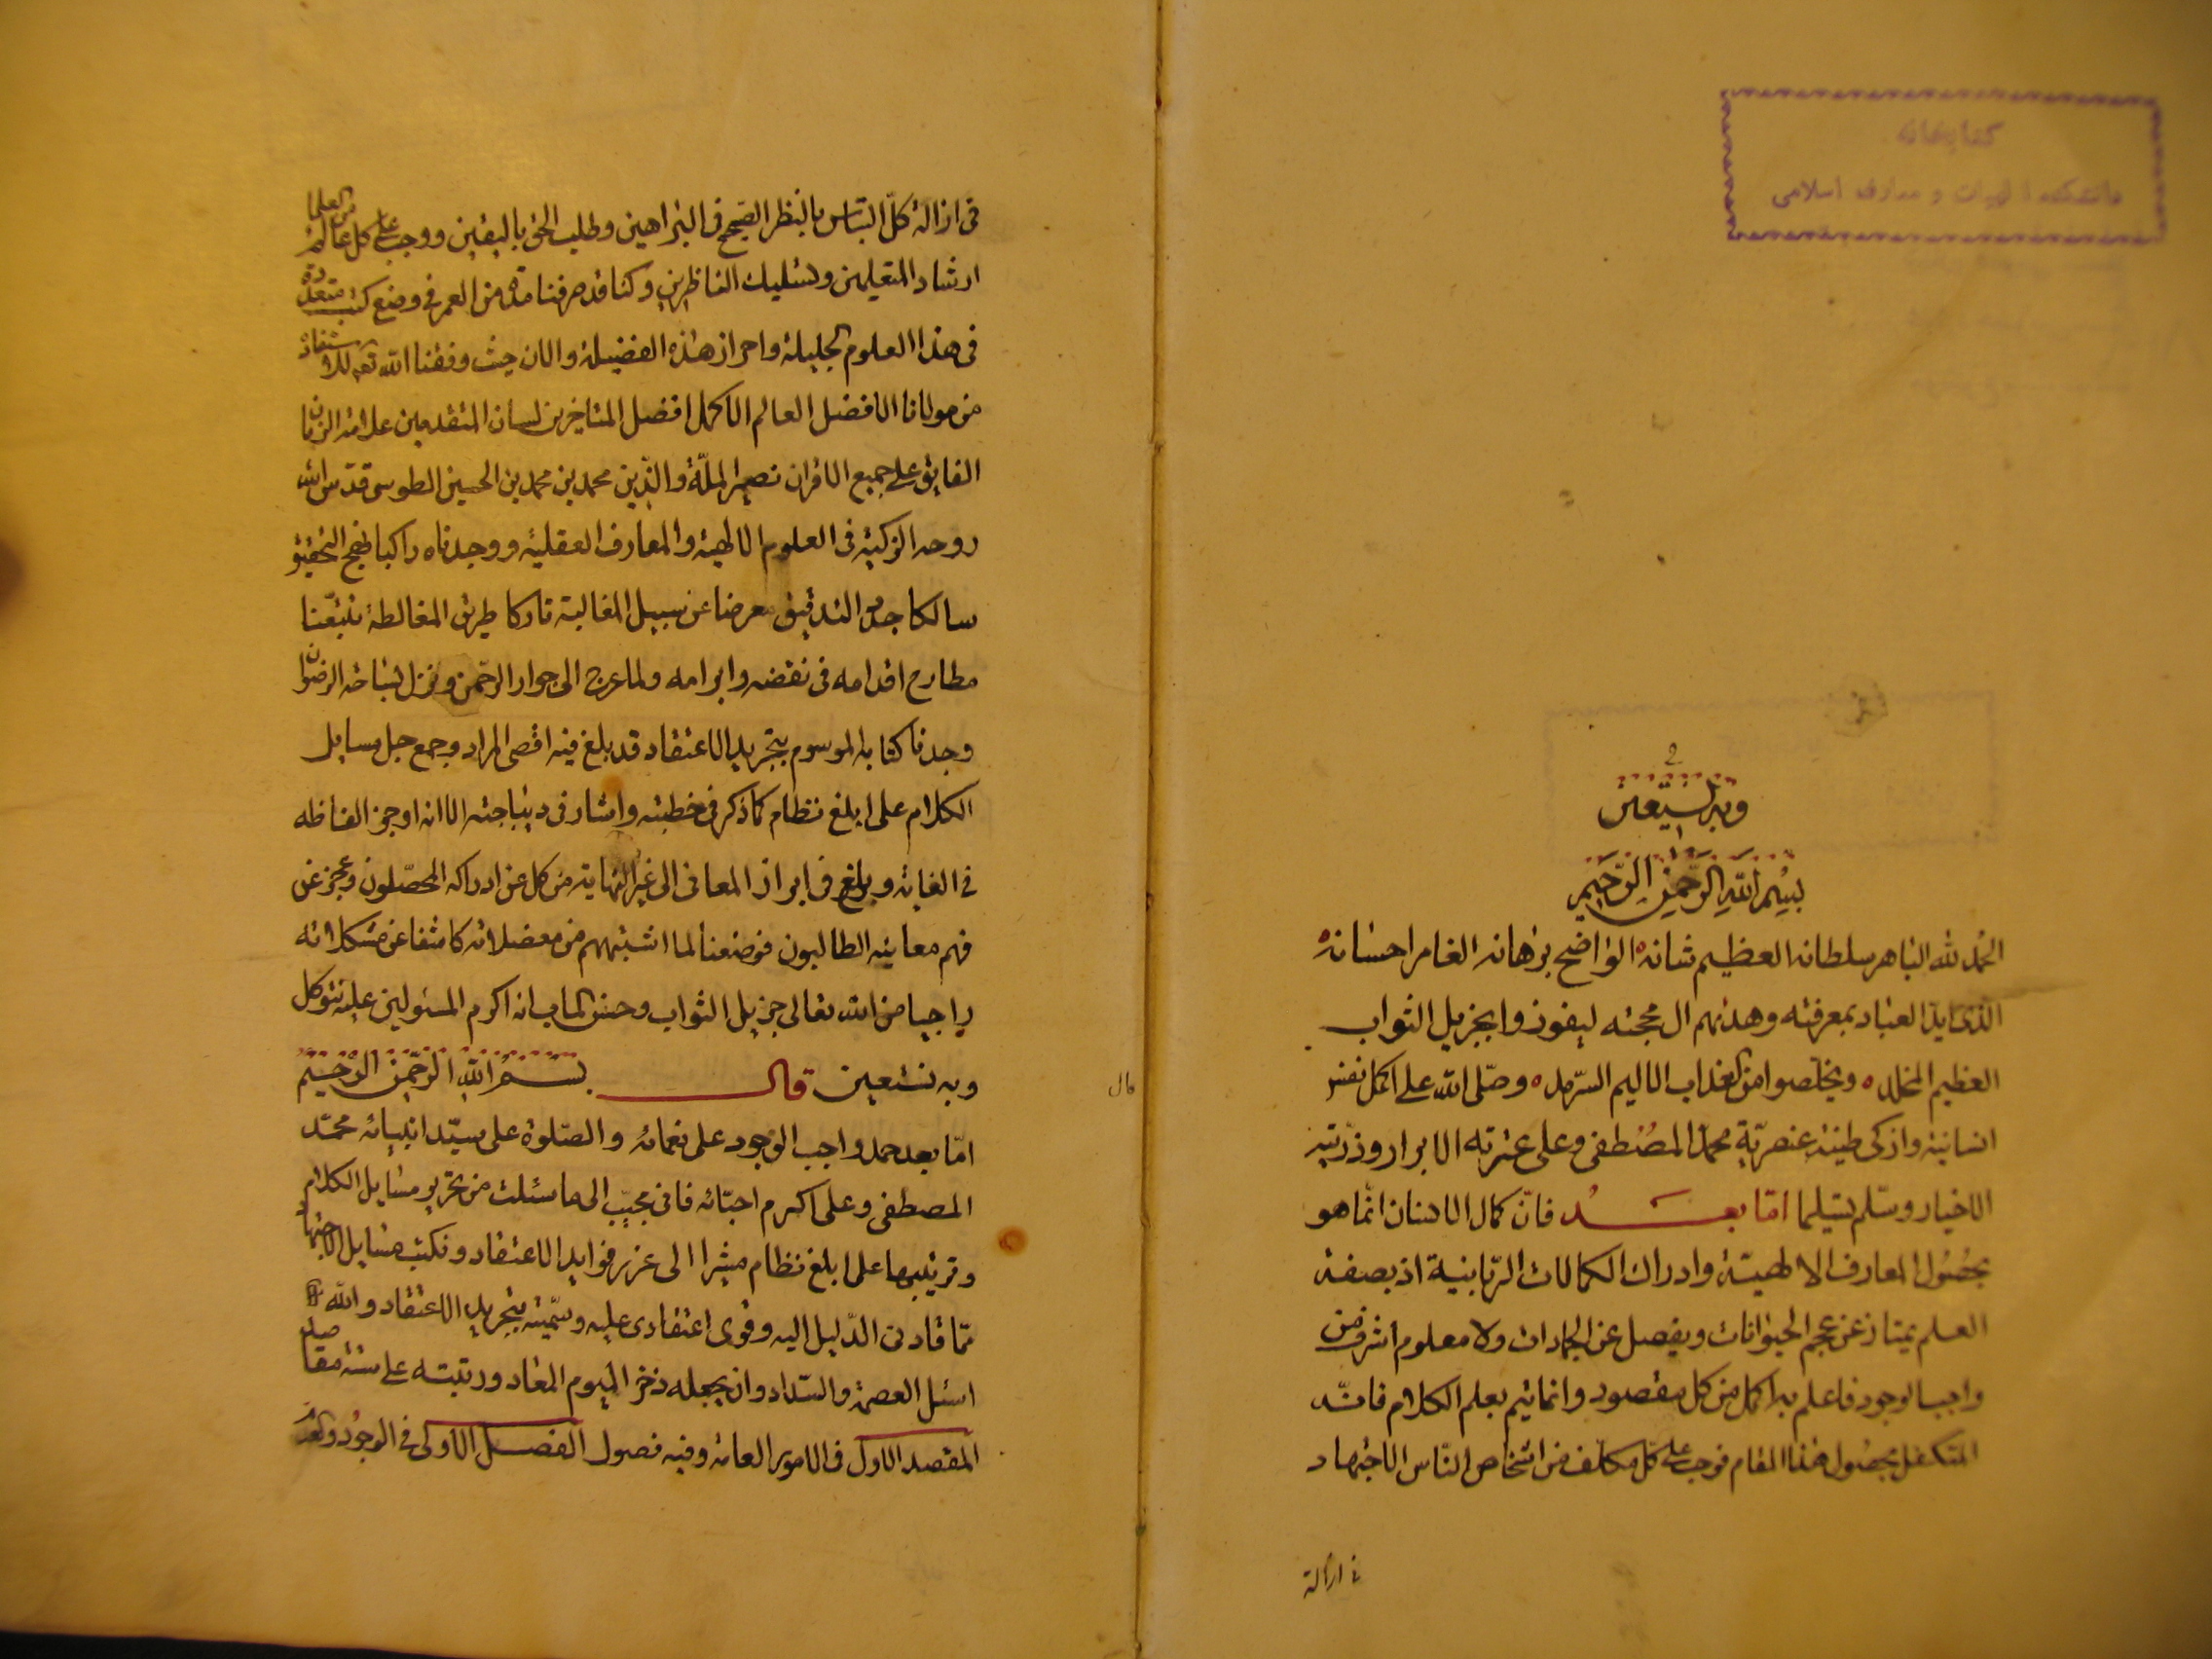 كتابخانه
دانشكده الهيات و معارف اسلامى
وبه نستعين
بسم الله الرحمن الرحيم
الحمد لله الباهر سلطانه العظيم شانه الواضح برهانه الغامر احسانه
الذى ايد العباد بمعرفته وهداهم الى محجته ليفوزوا بجزيل الثواب
العظيم المخلد ويخلصوا من العذاب الاليم السرمد وصلى الله على اكمل نفس
انسانية وازكى طينة عنصرية محمد المصطفى وعلى عترته الابرار وذريته
الاخيار وسلم تسليما اما بعد فان كمال الانسان انما هو
بحصول المعارف الالهية وادراك الكمالات الربانية اذ بصفة
العلم يمتاز عن عجم الحيوانات ويفصل عن الجمادات ولا معلوم اشرف من
واجب الوجود فالعلم به اكمل من كل مقصود وانما يتم بعلم الكلام فانه
المتكفل بحصول هذا المقام فوجب على كل مكلف من اشخاص الناس الاجتهاد
فى ازالة
فى ازالة كل التباس بالنظر الصحيح فى البراهين وطلب الحق باليقين ووجب على كل عالم من العلما
ارشاد المتعلمين وتسليك الناظرين وكنا قد صرفنا مدة من العمر فى وضع كتب متعددة
فى هذا العلوم الجليلة واحراز هذه الفضيلة والان حيث وفقنا الله تعه للاستفادة
من مولانا الافضل العالم الاكمل افضل المتاخرين لسان المتقدمين علامة الزمان
الفايق على جميع الاقران نصير الملة والدين محمد بن محمد بن الحسين الطوسى قدس الله
روحه الزكية فى العلوم الالهية والمعارف العقلية ووجدناه راكبا نهج التحقيق
سالكا جدد التدقيق معرضا عن سبيل المغالبة تاركا طريق المغالطة تتبعنا
مطارح اقدامه فى نقضه وابرامه ولما عرج الى جوار الرحمن ونزل بساحة الرضوان
وجدنا كتابه الموسوم بتجريد الاعتقاد قد بلغ فيه اقصى المراد وجمع جل مسايل
الكلام على ابلغ نظام كما ذكر فى خطبته واشار فى ديباجته الا انه اوجز الفاظه
فى الغاية وبلغ فى ايراد المعانى الى غير النهاية من كل عن ادراكه المحصلون وعجز عن
فهم معانيه الطالبون فوضعنا لما اشتبههم من معضلاته كاشفا عن مشكلاته
راجيا من الله تعالى جزيل الثواب وحسن الماب انه اكرم المسئولين عليه نتوكل
وبه نستعين قال بسم الله الرحمن الرحيم
قال
اما بعد حمد واجب الوجود على نعمائه والصلوة على سيد انبيائه محمد
المصطفى وعلى اكرم احبائه فانى مجيب الى ما سئلت من تحرير مسايل الكلام
وترتيبها على ابلغ نظام مشيرا الى غرر فوايد الاعتقاد ونكت مسايل الاجتهاد
مما قادنى الدليل اليه وقوى اعتقادى عليه وسميته بتجريد الاعتقاد والله
اسئل العصمة والسداد وان يجعله ذخرا ليوم المعاد ورتبته على ستة مقاصد
المقصد الاول فى الامور العامة وفيه فصول الفصل الاول فى الوجود والعدم